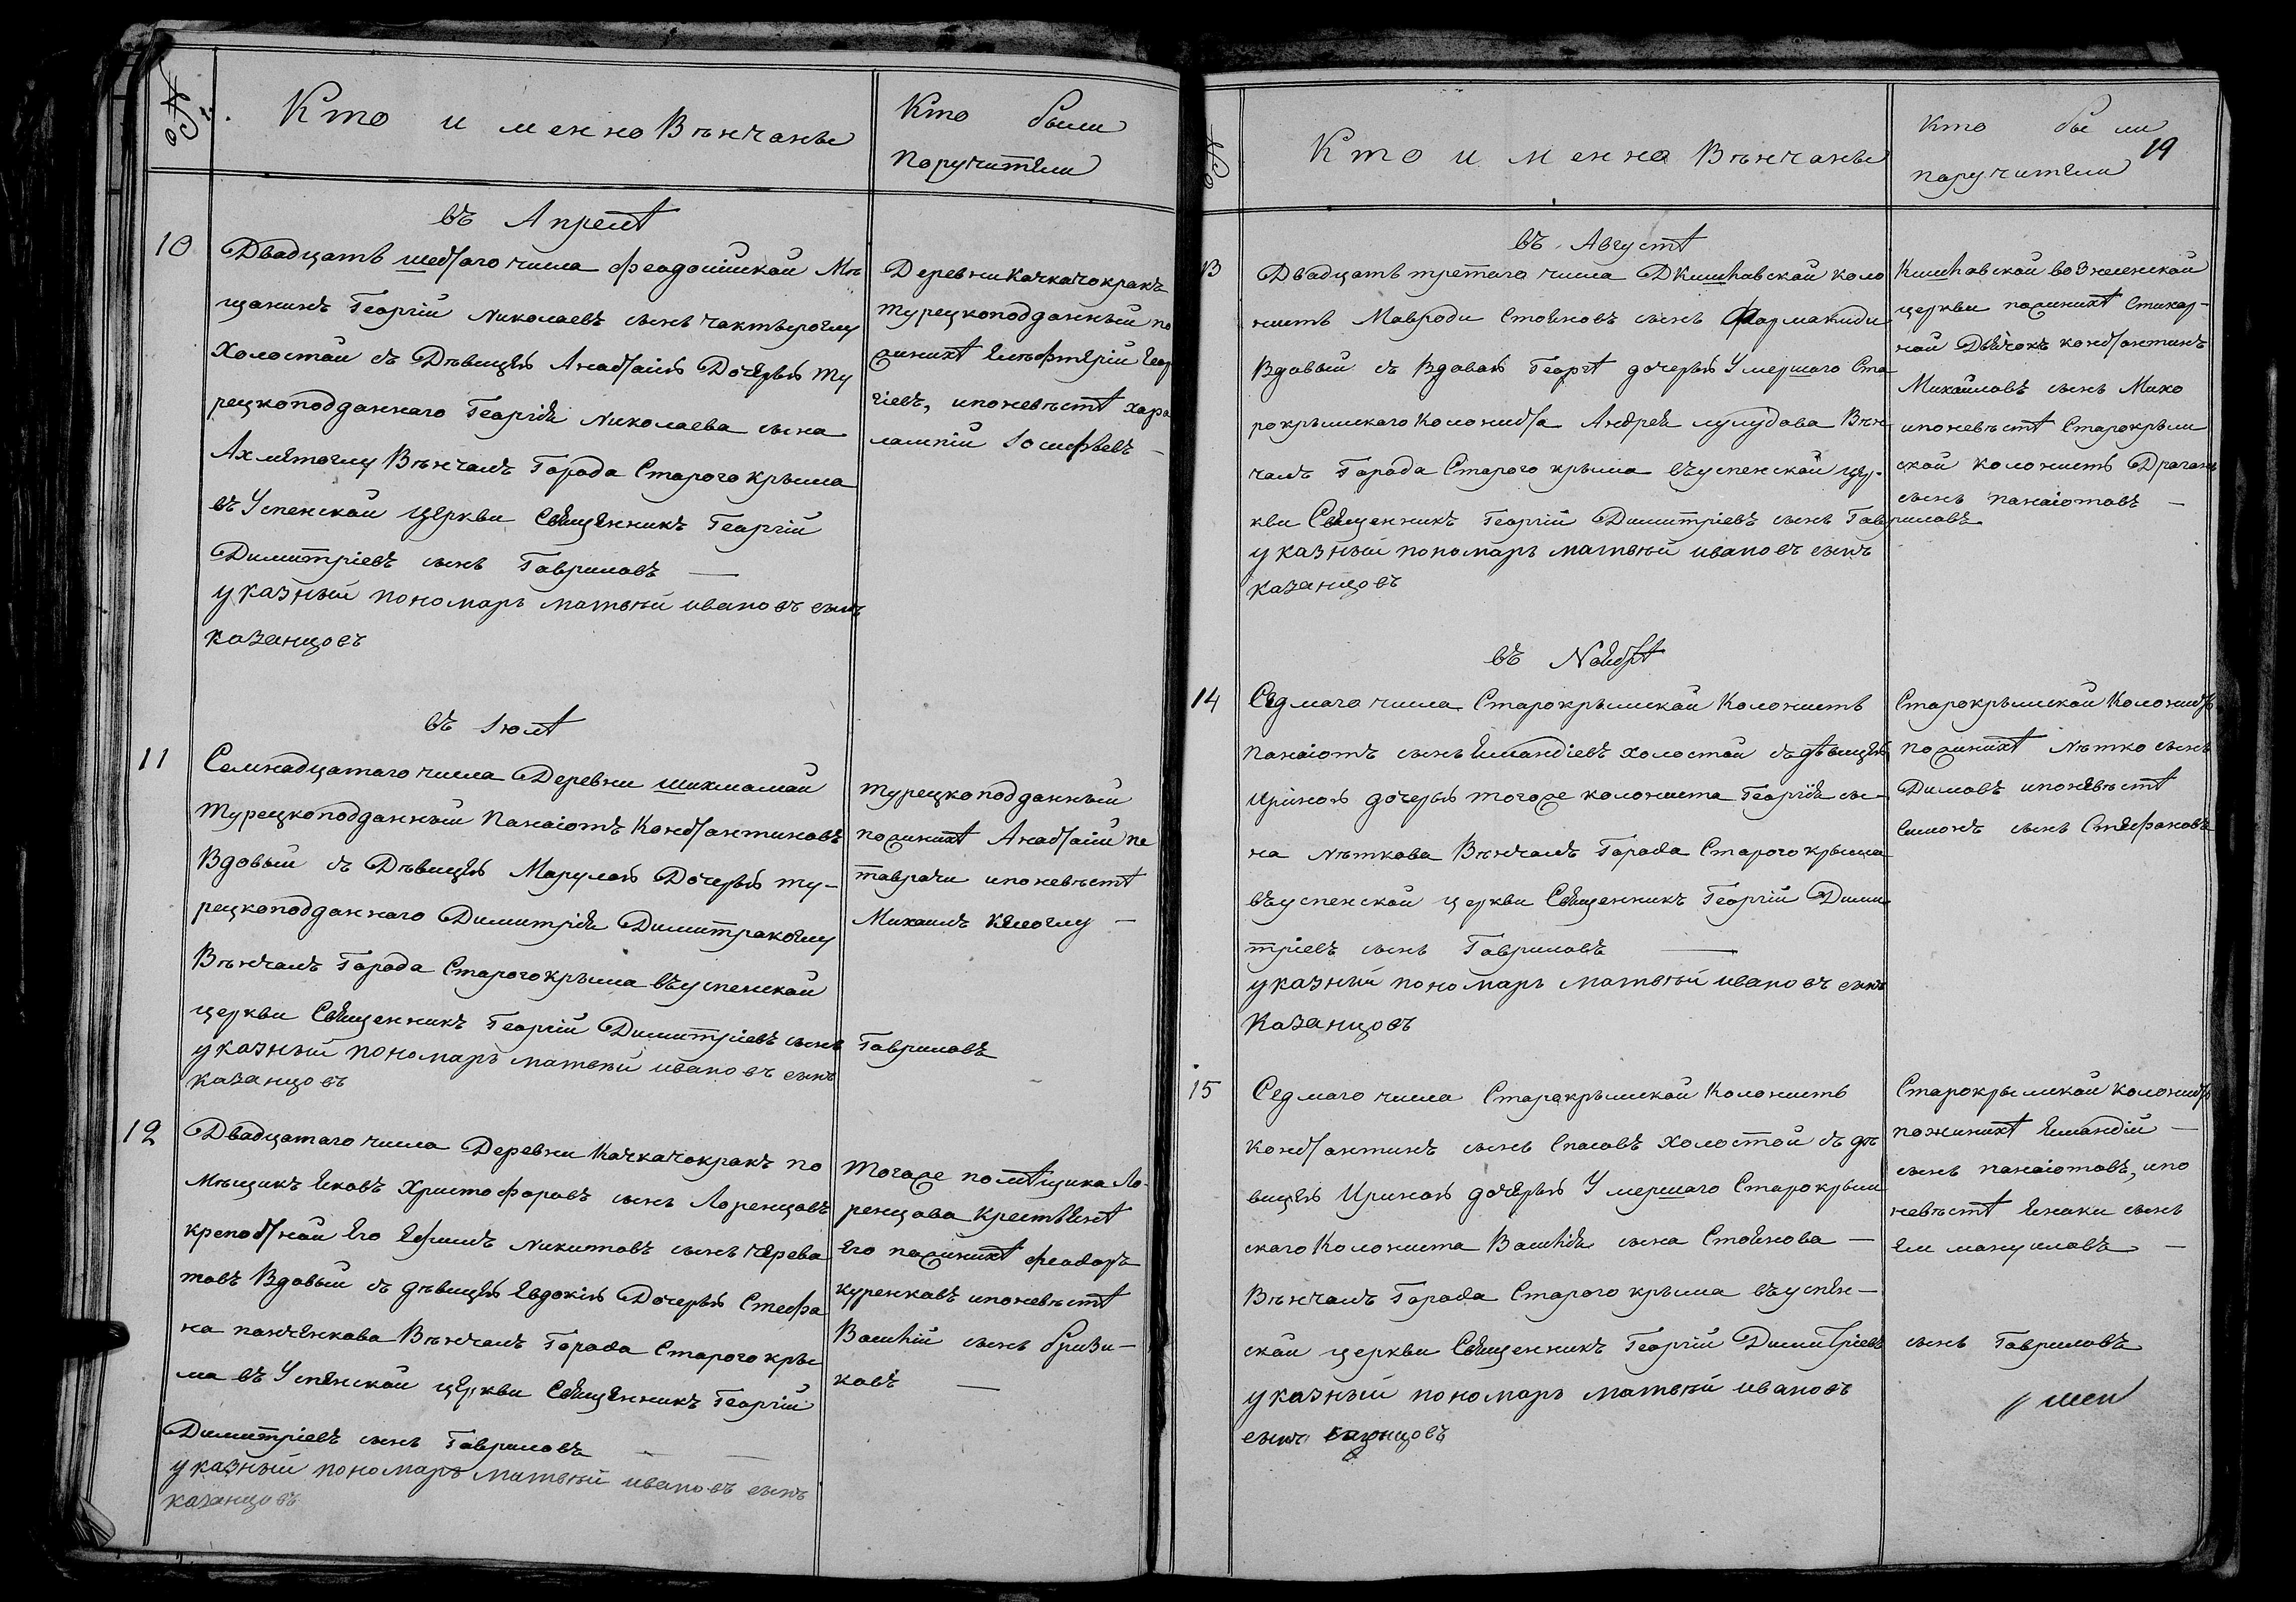 №
Кто именно Вѣнчаны
Кто были
поручители
въ Апрелѣ
10
Двадцать шестаго числа феадосійскай Мѣ
щанинъ Георгій Николаевъ сынъ чактыроглу
Холостай съ Дѣвицея Анастасія Дочерья ту
рецкоподданнаго Георгія Николаева сына
Ахметоглу Вѣнчалъ Города Старого крыма
въ Успенскай церкви Священникъ Георгій
Димитріевъ сынъ Гавриловъ —
указный пономарь матвѣй ивановъ сынъ
казанцовъ
Деревни Качкачокракъ
турецкоподданный по
женихѣ Елѣфтерій Геор
гіевъ, ипоневѣстѣ хара
лампій Іосифьевъ —
въ Іюлѣ
11
Семнадцатаго числа Деревни шихмамай
Турецкоподданный Панаіотъ Константиновъ
Вдовый съ Дѣвицея Марулоя Дочерья ту-
рецкоподданнаго Димитрія Димитракоглу
Вѣнчалъ Города Старогокрыма въуспенскай
церкви Священникъ Георгій Димитріевъ сынъ Гавриловъ
указный пономарь матвѣй ивановъ сынъ
казанцовъ
турецкоподданный
поженихѣ Анастасій пе
таврачи ипоневѣстѣ
Михаилъ Келоглу —
12
Двадцатаго числа Деревни Качкачокракъ по
Мѣщикъ Яковъ Христофоровъ сынъ Лоренцовъ
крепостнай Его Ефимъ никитовъ сынъ черева
товъ Вдовый съ дѣвицея Евдокія Дочерья Стефа
на панченкава Вѣнчалъ Города Старого кры
ма въ Успенскай церкви Священникъ Георгій
Димитріевъ сынъ Гавриловъ —
указный пономарь матвѣй ивановъ сынъ
казанцовъ
тогоже помѣщика Ло-
ренцова Крестьянѣ
Его поженихѣ феадоръ
куренкавъ ипоневѣстѣ
Василій сынъ бризи-
ковъ —
№
Кто именно Вѣнчаны
Кто были
поручители
19
въ Августѣ
13
Двадцать третяго числа Дкишлавскай коло
нистъ Мавроди Стояновъ сынъ Фармакиди
Вдовый съ Вдовая Георгѣ дочерья Умершаго Ста
рокрымскаго Колониста Андрея лулудова Вѣн
чалъ Города Старого крыма въуспенскай цер-
кви Священникъ Георгій Димитріевъ сынъ Гавриловъ
указный пономарь матвѣй ивановъ сынъ
казанцовъ
Кишлавскай возненскай
церкви поженихѣ Стихар-
най Дьячокъ константинъ
Михайловъ сынъ Мико
ипоневѣстѣ Старокрым
скай колонистъ Драганъ
сынъ панаіотовъ —
въ Ноябрѣ
14
Седмаго числа Старокрымскай Колонистъ
Панаіотъ сынъ Елмандіевъ холостай съдѣвицея
Ириноя дочерья тогоже колониста Георгія сы-
на нѣткова Вѣнчалъ Города Старого крыма
въуспенскай церкви Священникъ Георгій Дими
тріевъ сынъ Гавриловъ —
указный пономарь матвѣй ивановъ сынъ
Казанцовъ
Старокрымскай Колонистъ
поженихѣ нѣтко сынъ
Димовъ ипоневѣстѣ
симонъ сынъ Стефановъ
15
Седмаго числа Старакрымскай Колонистъ
константинъ сынъ Спасовъ холостой съ дѣ
вицея Ириноя дочерья Умершаго Старокрым
скаго Колониста Василія сына Стоянова —
Вѣнчалъ Города Старого крыма въуспен-
скай церкви Священникъ Георгій Димитріевъ сынъ Гавриловъ
указный пономарь матвѣй ивановъ
сынъ казанцовъ
Старокрымскай колонистъ
поженихѣ Елмандій —
сынъ панаіотовъ, ипо
невѣстѣ Енаки сынъ
Еммануиловъ —